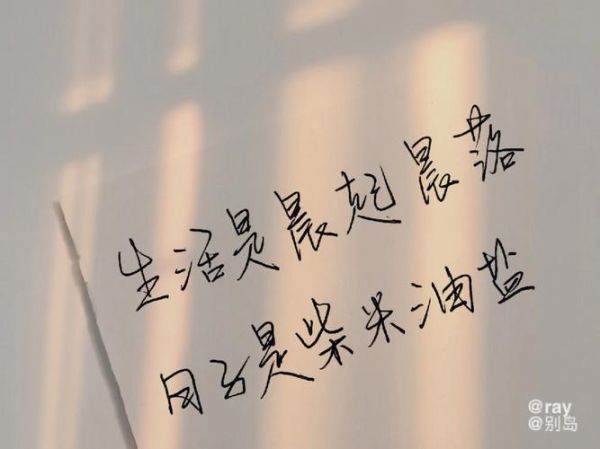 生活是晨起晨落
日子是柴米油盐
@ray
@别岛